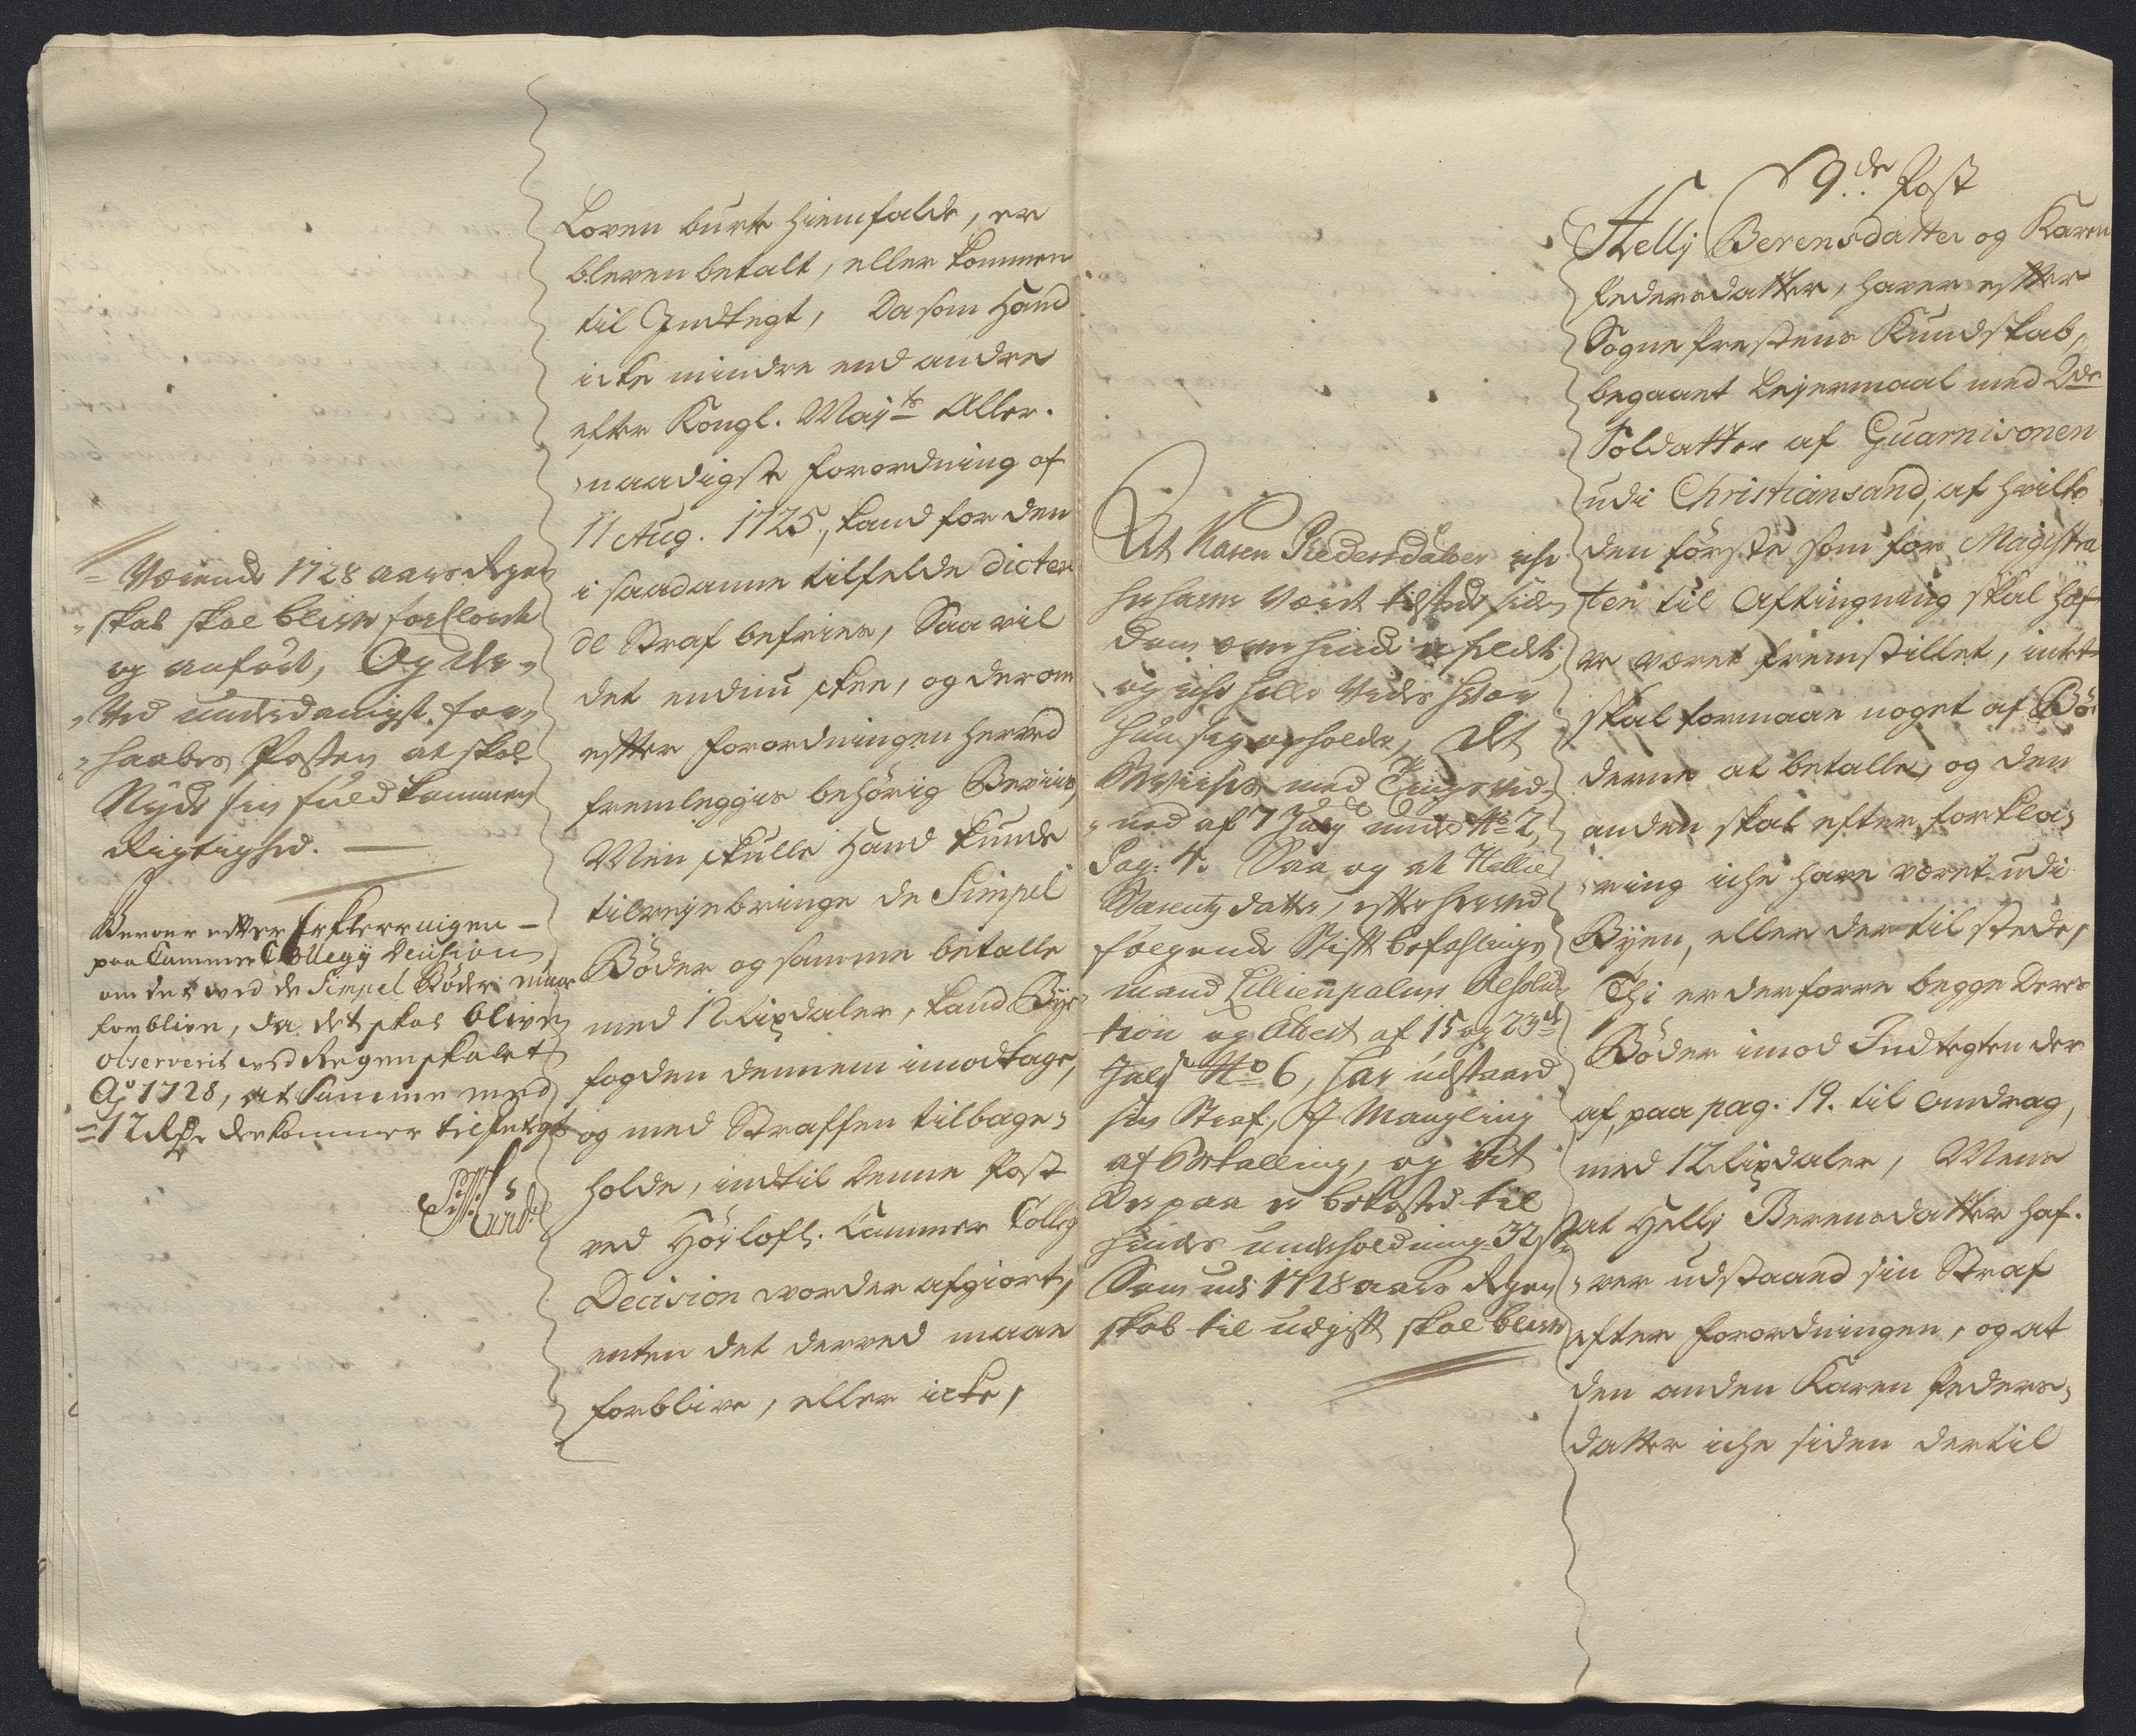 Værende 1728 aars Regen
skab skal blive forklaret
og anført, Og der
ved underdanigst for
haabes Posten at skal
Nyde sin fuldkommen
Rigtighed.
Beroer efter Erklerringen
paa Cammer Collegij Decision
om det ved de Simpel Bøder maae
forblive, da det skal blive
observerit ved Regenskabet
Ao 1728, at Summen med
12 Rdr der kommer til Indtegt
Loven burte hiemfalde, er
bleven betalt, eller kommen
til Indtegt, Da som Hand
icke mindre end andre
efter Kongl. Majts Aller
naadigste forordning af
11 Aug. 1725, kand for den
i saadanne tilfelde dicter
de Straf befries, Saa vil
det endnu skee, og derom
efter forordningen herved
fremleggis behørig Beviis,
Men skulle Hand kunde
tilvejebringe de Simpel
Bøder og samme betalle
med 12 Rixdaler, kand Bye
fogden dennem imodtage,
og med Straffen tilbage
holde, indtil denne Post
ved Høylofl. Cammer Colleg
Decision vorder afgiort,
enten det derved maae
forblive, eller icke,
At Karen Pedersdatter iche
her haver Været tilstede, siden
dom over hende er feldt
og iche heller Vides hvor
hun sig opholder, Det
Beviises med Tingsvid
ned af 7 July under No 2,
Pag: 4. Saa og at Hellie
Barentzdatter, efter herved
følgende Stift befahlings
mand Lillienpalms Resolu
tion og Attest af 15 og 23de
July No 6, har udstaaed
sin Straf, I Mangling
af Betalling, og det
der paa er bekosted til
hendes underholdning 32 s
Som udi 1728 aars Regen
skab til udgift skal blive
9de Post
Hellj Berensdatter og Karen
Pedersdatter, haver efter
Sogneprestens Kundskab,
begaaet Lejermaal med 2de
Soldatter af Guarnisonen
udi Christiansand, af hvilke
den første som for Magistra
ten til Aftingning skal haf
ve været fremstillet, intet
skal formaae noget af Bø
derne at betalle, og den
anden skal efter forkla
ring iche have været udi
Byen, eller der til stede,
Thi er derforre begge deres
Bøder imod Indtegten der
af, paa pag. 19. til Andrag,
med 12 Rixdaler, Mens
at Hellj Berensdatter haf
ver udstaaed sin Straf
efter forordningen, og at
den anden Karen Peders
datter iche siden dertil